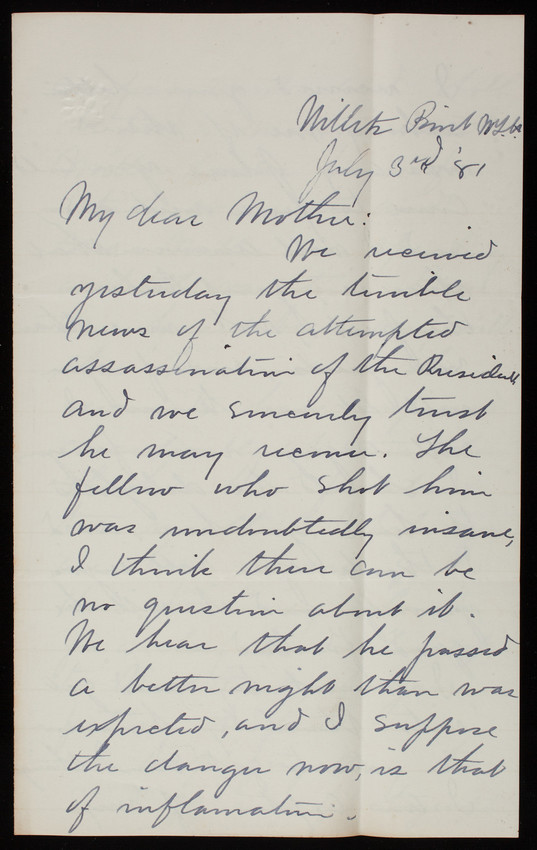 Willets Point N.Y.H.
July 3rd '81
My dear Mother:
We received
yesterday the terrible
news of the attempted
assassination of the President,
and we sincerely trust
he may recover. The
fellow who shot him
was undoubtedly insane,
I think there can be
no question about it.
We hear that he passed
a better night than was
expected, and I suppose
the danger now, is that
of inflamation.